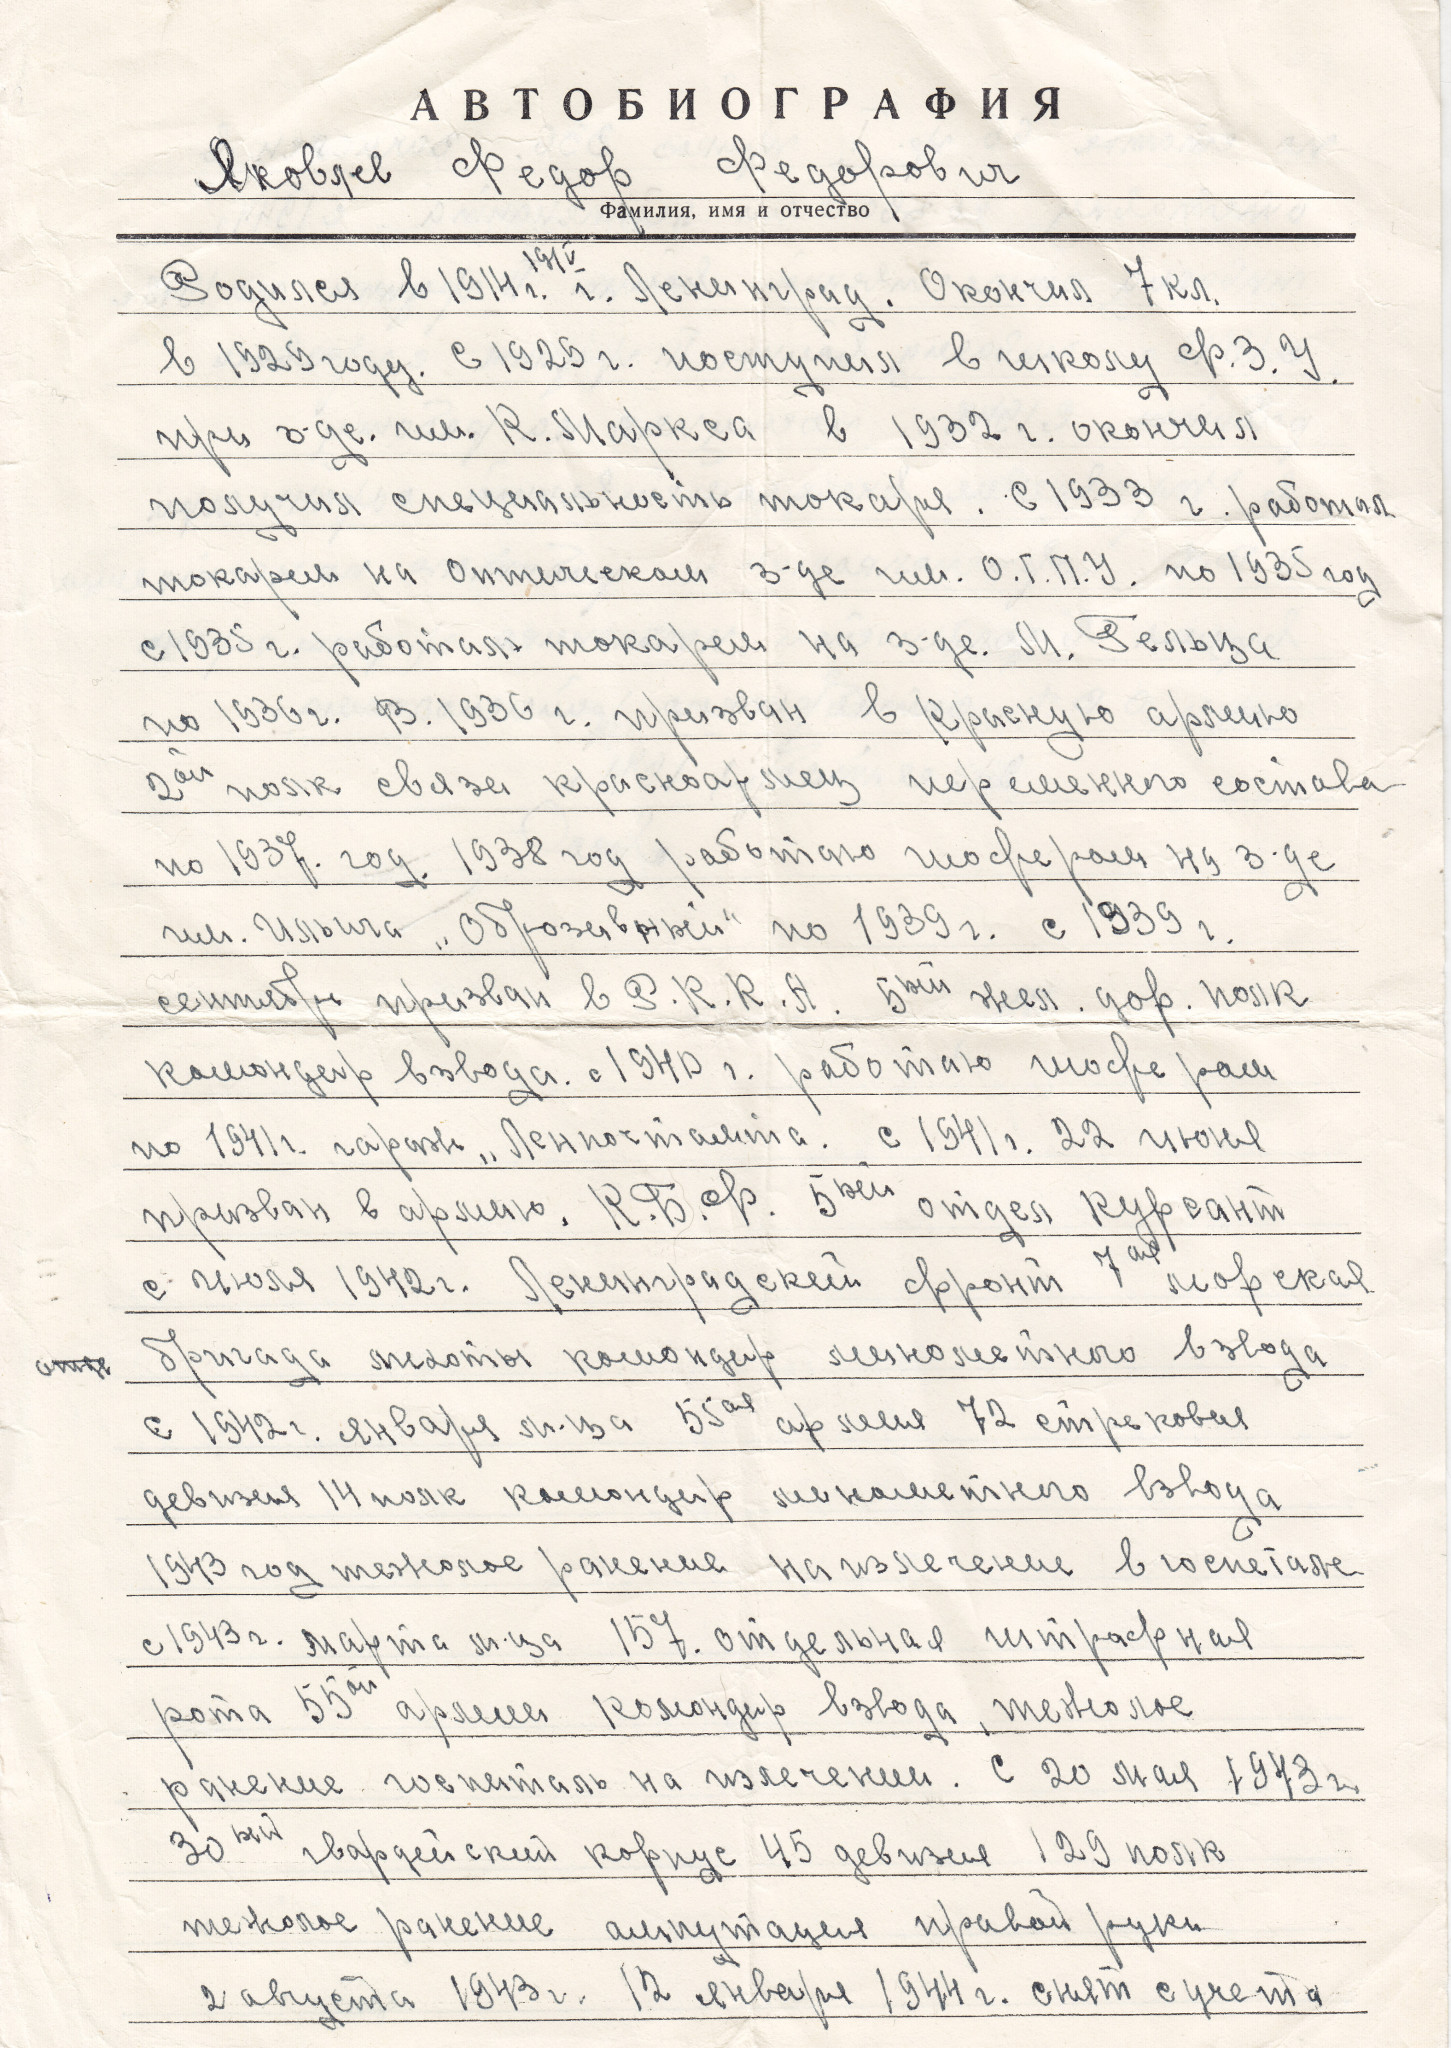 АВТОБИОГРАФИЯ
Яковлев Федор Федорович
Фамилия, имя и отчество
19/V
Родился в 1914г. г. Ленинград. Окончил 7 кл.
в 1929 году. С 1929 г. поступил в школу Ф.З.У.
при з-де. им. К. Маркса в 1932 г. окончил
получил специальность токаря. С 1933 г. работал
токарем на Оптическом з-де им. О.Г.П.У. по 1935 год
с 1935 г. работал токарем на з-де. М. Гельца
по 1936 г. В. 1936 г. призван в Красную армию
2ой полк связи красноармец переменного состава
по 1937. год. 1938 год работаю шофером на з-де
им. Ильича по 1939 г. с 1939 г.
сентябрь призван в Р.К.К.А. 5ый жел. дор. полк
командир взвода. с 1940 г. работаю шофером
по 1941 г. гараж „Ленпочтамта. с 1941 г. 22 июня
призван в армию. К.Б.Ф. 5ый отдел курсант
с июля 1942 г. Ленинградский фронт 7ая морская
бригада пехоты командир минометного взвода
с 1942 г. января м-ца 55ая армия 72 стрековая
девизия 14 полк командир менометного взвода
1943 год тежолое ранение на излечение в госпетале
с 1943 г. марта м-ца 157. отдельная штрафная
рота 55ой армии командир взвода, тежолое
ранение госпиталь на излечении. С 20 мая 1943 г.
30ый гвардейский корпус 45 девизия 129 полк
тежолое ранение ампутация правой руки
2 августа 1943 г. 12 января 1944 г. снят с учета